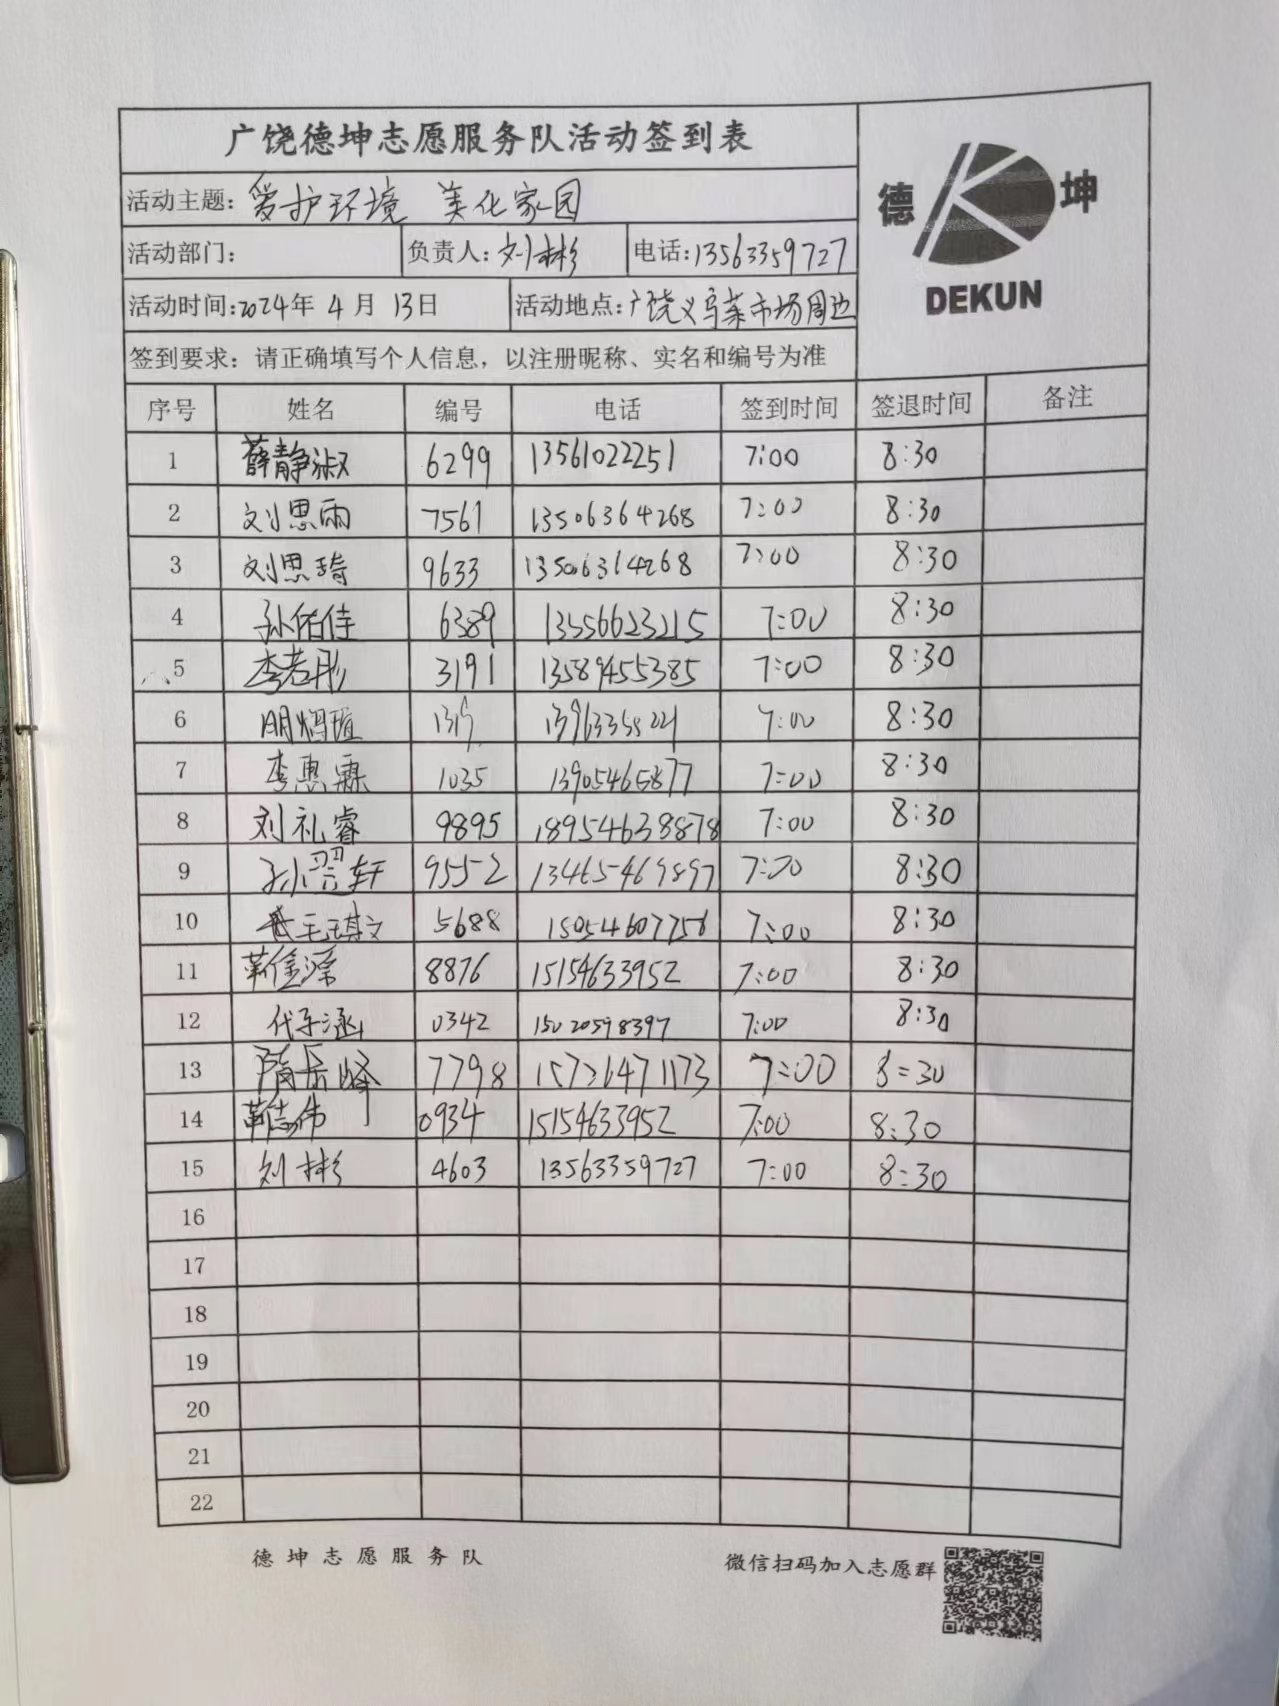 广饶德坤志愿服务队活动签到表
德 坤
DEKUN
活动主题：爱护环境 美化家园
活动部门： 负责人：刘彬 电话：13563359727
活动时间：2024年 4 月 13日 活动地点：广饶义乌菜市场周边
签到要求：请正确填写个人信息，以注册昵称、实名和编号为准
序号 姓名 编号 电话 签到时间 签退时间 备注
1 薛静淑 6299 13561022251 7:00 8:30
2 刘思雨 7561 13506364268 7:00 8:30
3 刘思琦 9633 13506364268 7:00 8:30
4 孙佑佳 6389 13556623215 7:00 8:30
5 李若彤 3191 13589455385 7:00 8:30
6 7:00 8:30
7 李惠霖 1035 13905465877 7:00 8:30
8 刘礼睿 9895 18954638878 7:00 8:30
9 9552 13465469897 7:00 8:30
10 5688 15054607756 7:00 8:30
11 8876 15154633952 7:00 8:30
12 代子涵 0342 15020598397 7:00 8:30
13 7798 15726471173 7:00 8:30
14 靳志伟 0934 15154633952 7:00 8:30
15 刘彬 4603 13563359727 7:00 8:30
16
17
18
19
20
21
22
德坤志愿服务队 微信扫码加入志愿群